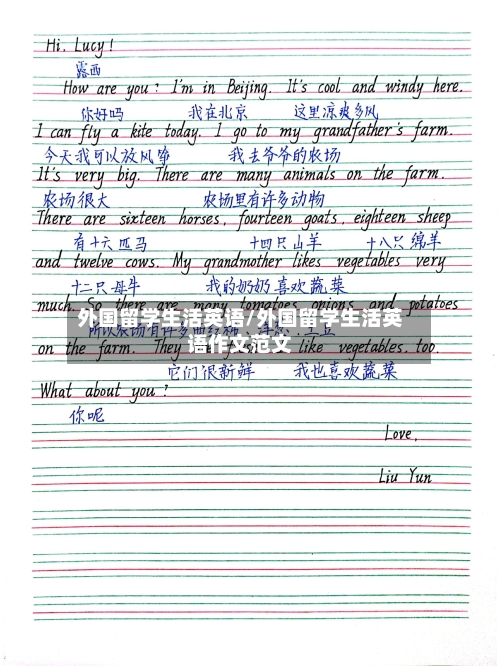 Hi, Lucy!
露西
How are you? I'm in Beijing. It's cool and windy here.
你好吗 我在北京 这里凉爽多风
I can fly a kite today. I go to my grandfather's farm.
今天我可以放风筝 我去爷爷的农场
It's very big. There are many animals on the farm.
农场很大 农场里有许多动物
There are sixteen horses, fourteen goats, eighteen sheep
有十六匹马 十四只山羊 十八只绵羊
and twelve cows. My grandmother likes vegetables very
十二只母牛 我的奶奶喜欢蔬菜
much. So there are many tomatoes, onions and potatoes
外国留学生活英语/外国留学生活英
语作文范文
所以农场有许多西红柿
on the farm. They like vegetables, too.
它们很新鲜 我也喜欢蔬菜
What about you?
你呢
Love,
Liu Yun